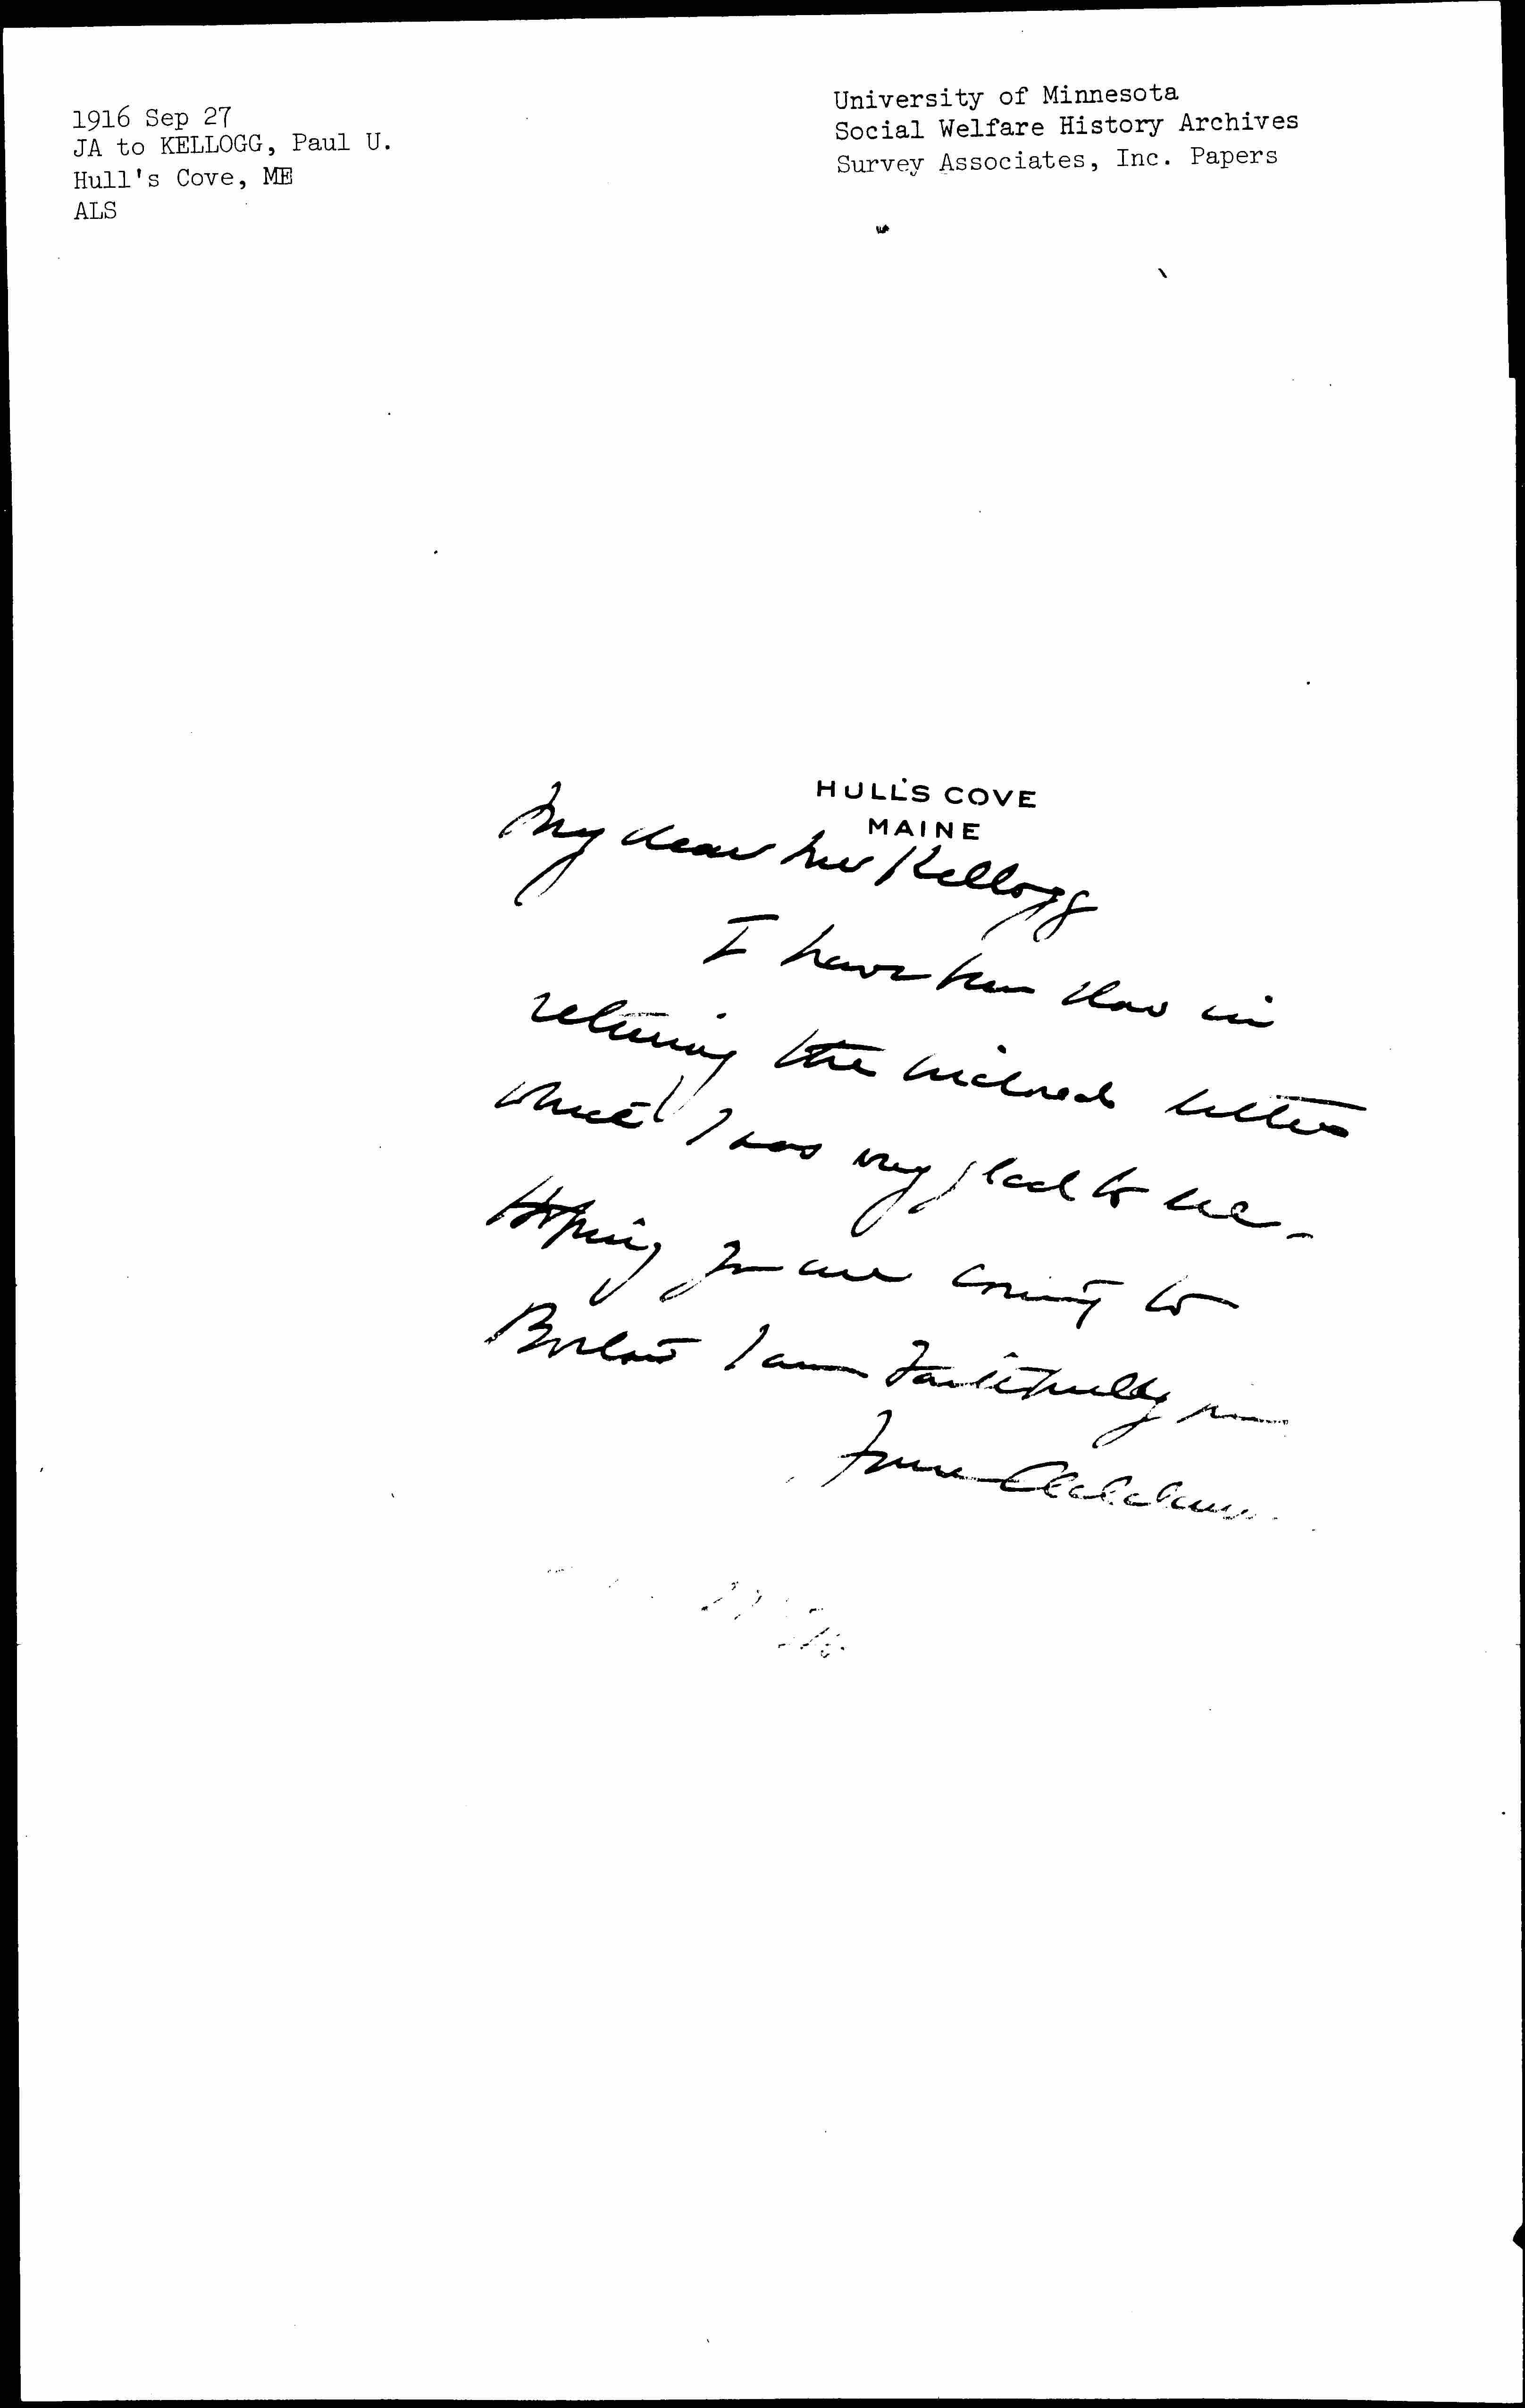 1916 Sep 27
JA to KELLOGG, Paul U.
Hull's Cove, ME
ALS
University of Minnesota
Social Welfare History Archives
Survey Associates, Inc. Papers
HULL'S COVE
MAINE
My dear Mr Kellogg
I have been slow in
returning the enclosed letters
which I was very glad to see -
Hoping you are coming to
I am Faithfully yours
Jane Addams
27